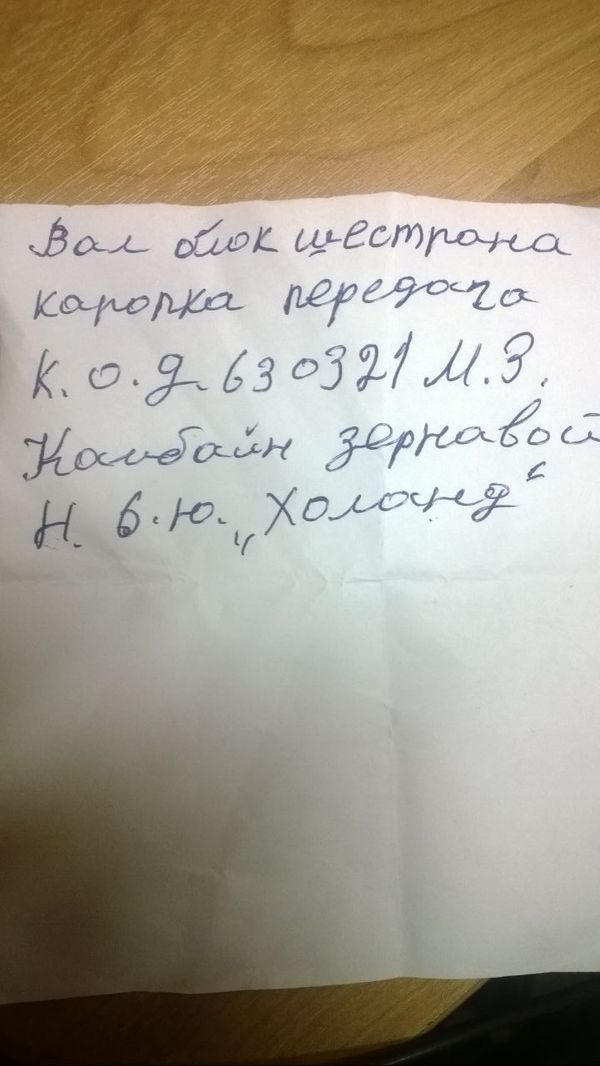 Вал блок шестрана
каропка передача
К.О.Д. 630321 М.З.
Камбайн зернавой
Н. б.ю. „Холанд“